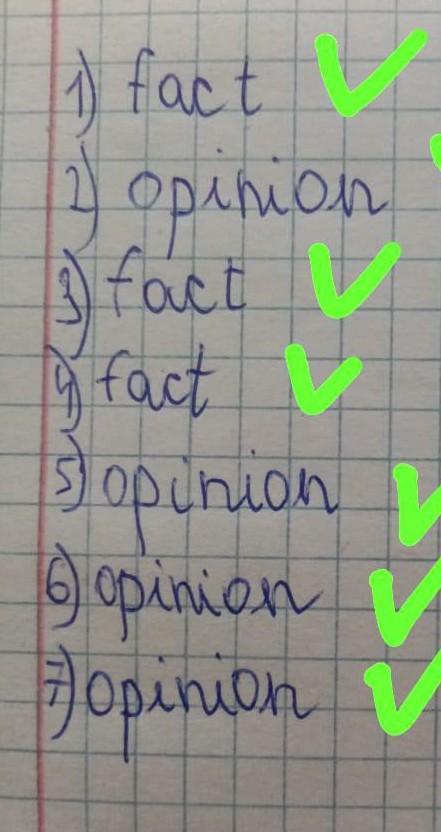 1) fact
2) opinion
3) fact
4) fact
5) opinion
6) opinion
7) opinion